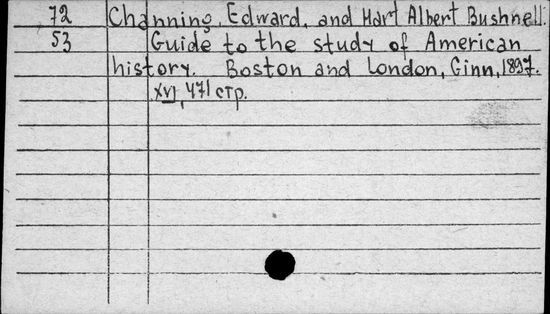 72 Channing, Edward, and Hart Albert Bushnell.
53 Guide to the study of American
history. Boston and London, Ginn, 1897.
XVI, 471 стр.